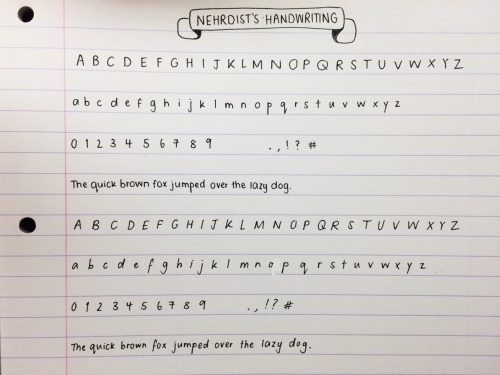 NEHRDIST'S HANDWRITING
A B C D E F G H I J K L M N O P Q R S T U V W X Y Z
a b c d e f g h i j k l m n o p q r s t u v w x y z
0 1 2 3 4 5 6 7 8 9 . , ! ? #
The quick brown fox jumped over the lazy dog.
A B C D E F G H I J K L M N O P Q R S T U V W X Y Z
a b c d e f g h i j k l m n o p q r s t u v w x y z
0 1 2 3 4 5 6 7 8 9 . , ! ? #
The quick brown fox jumped over the lazy dog.